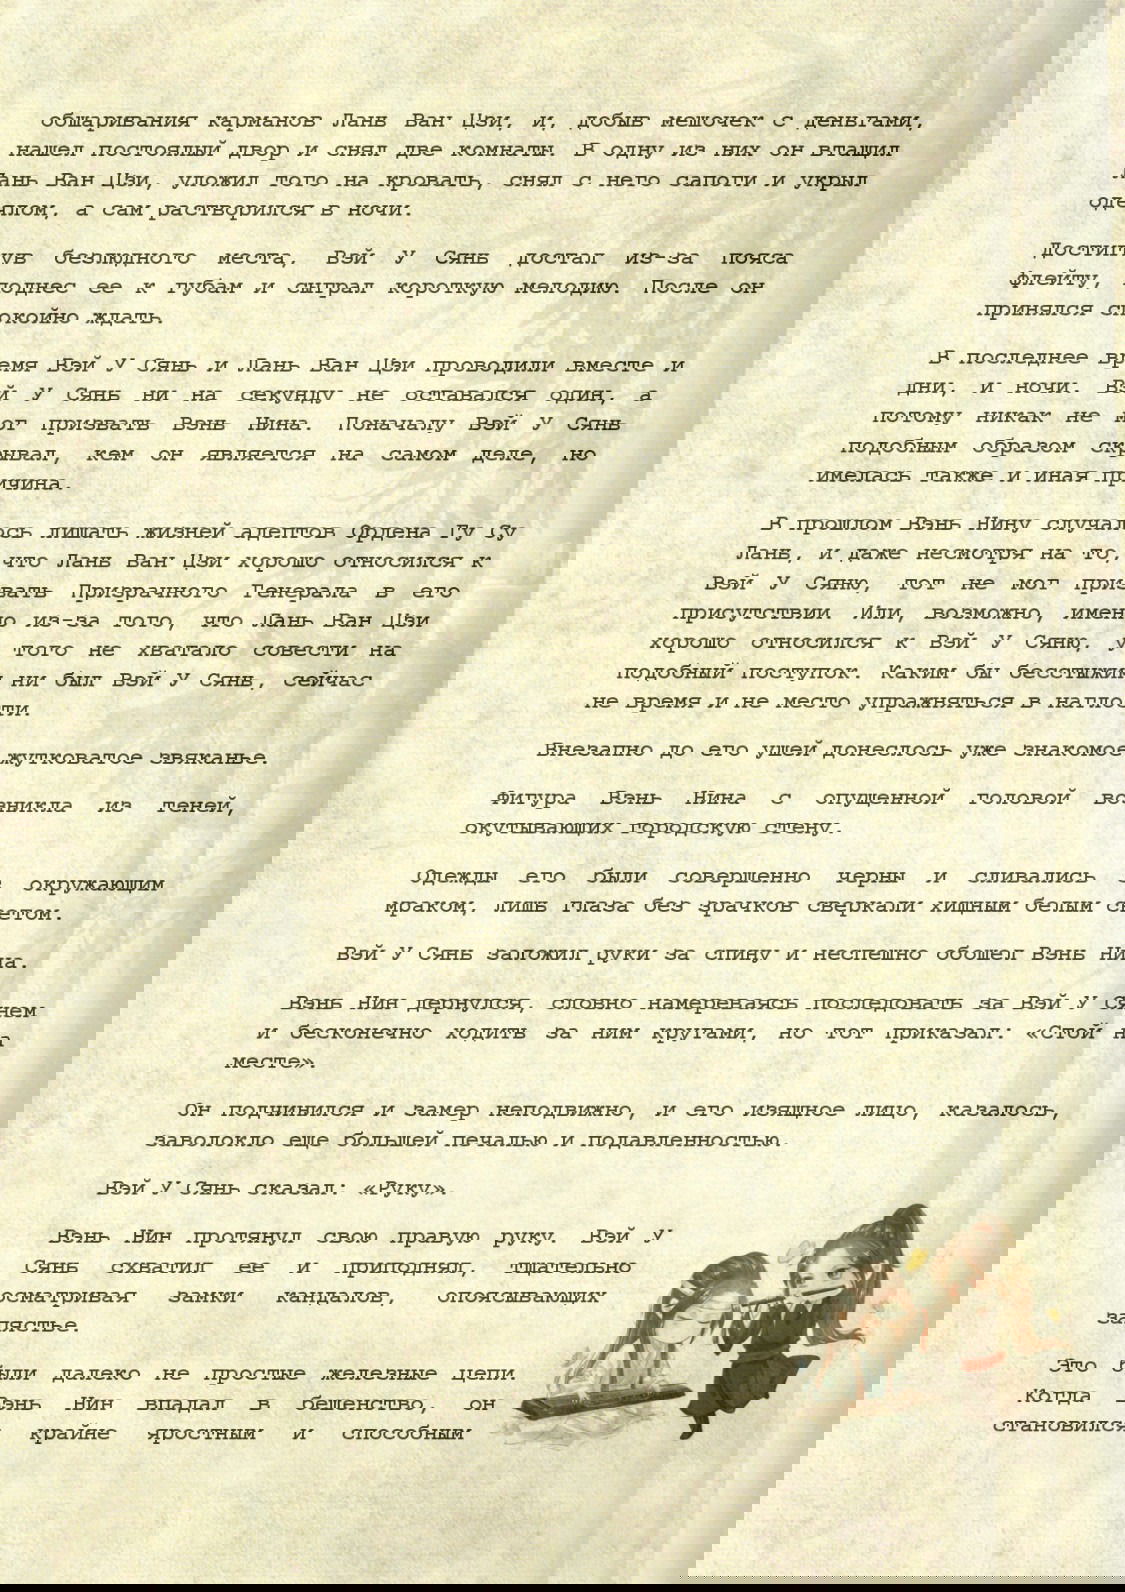 обшаривания карманов Лань Ван Цзи, и, добыв мешочек с деньгами,
нашел постоялый двор и снял две комнаты. В одну из них он втащил
Лань Ван Цзи, уложил того на кровать, снял с него сапоги и укрыл
одеялом, а сам растворился в ночи.
Достигнув безлюдного места, Вэй У Сянь достал из-за пояса
флейту, поднес ее к губам и сыграл короткую мелодию. После он
принялся спокойно ждать.
В последнее время Вэй У Сянь и Лань Ван Цзи проводили вместе и
дни, и ночи. Вэй У Сянь ни на секунду не оставался один, а
потому никак не мог призвать Вэнь Нина. Поначалу Вэй У Сянь
подобным образом скрывал, кем он является на самом деле, но
имелась также и иная причина.
В прошлом Вэнь Нину случалось лишать жизней адептов Ордена Гу Су
Лань, и даже несмотря на то, что Лань Ван Цзи хорошо относился к
Вэй У Сяню, тот не мог призвать Призрачного Генерала в его
присутствии. Или, возможно, именно из-за того, что Лань Ван Цзи
хорошо относился к Вэй У Сяню, у того не хватало совести на
подобный поступок. Каким бы бесстыжим ни был Вэй У Сянь, сейчас
не время и не место упражняться в наглости.
Внезапно до его ушей донеслось уже знакомое жутковатое звяканье.
Фигура Вэнь Нина с опущенной головой возникла из теней,
окутывающих городскую стену.
Одежды его были совершенно черны и сливались с окружающим
мраком, лишь глаза без зрачков сверкали хищным белым светом.
Вэй У Сянь заложил руки за спину и неспешно обошел Вэнь Нина.
Вэнь Нин дернулся, словно намереваясь последовать за Вэй У Сянем
и бесконечно ходить за ним кругами, но тот приказал: «Стой на
месте».
Он подчинился и замер неподвижно, и его изящное лицо, казалось,
заволокло еще большей печалью и подавленностью.
Вэй У Сянь сказал: «Руку».
Вэнь Нин протянул свою правую руку. Вэй У
Сянь схватил ее и приподнял, тщательно
осматривая замки кандалов, опоясывающих
запястье.
Это были далеко не простые железные цепи.
Когда Вэнь Нин впадал в бешенство, он
становился крайне яростным и способным